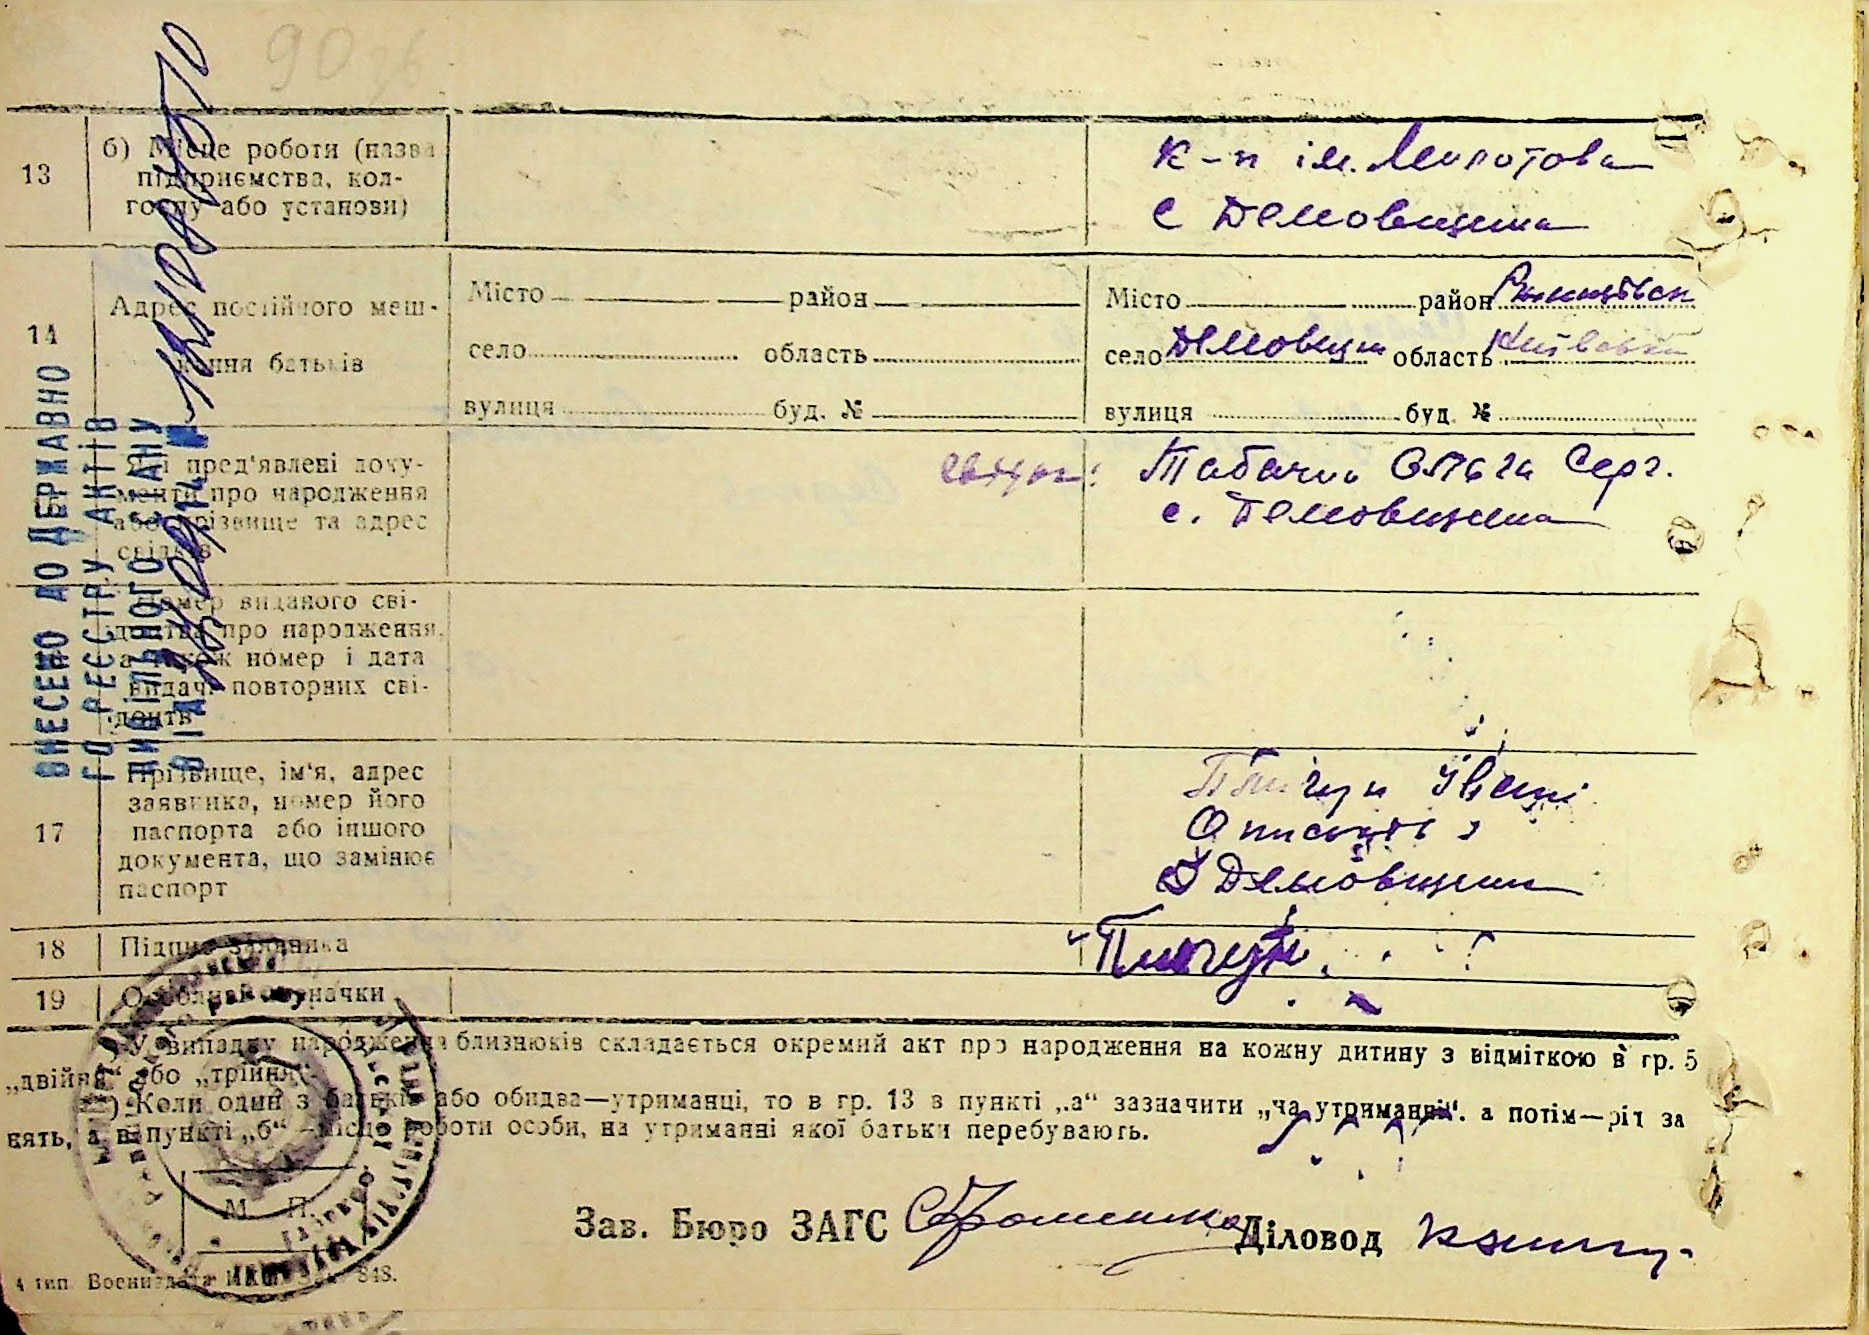 90 зв
13 б) Місце роботи (назва
підприємства, кол-
госпу або установи)
к-п ім. Молотова
с Демовщина
14 Адрес постійного меш-
кання батьків
Місто район
село область
вулиця буд. №
Місто район
село Демовщин область Київська
вулиця буд. №
Які пред'явлені доку-
менти про народження
або прізвище та адрес
свідків
свідки: Табачна Ольга Серг.
с. Демовщина
Номер виданого сві-
доцтва про народження,
а також номер і дата
видачі повторних сві-
доцтв
17 Прізвище, ім'я, адрес
заявника, номер його
паспорта або іншого
документа, що замінює
паспорт
Демовщина
18 Підпис заявника
19 Особливі одзначки
У випадку народження близнюків складається окремий акт про народження на кожну дитину з відміткою в гр. 5
„двійня" або „трійня".
Коли один з батьків або обидва—утриманці, то в гр. 13 в пункті „а" зазначити „на утриманні", а потім—рід за
нять, а в пункті „б"—місце роботи особи, на утриманні якої батьки перебувають.
М. П.
Зав. Бюро ЗАГС Діловод
4 тип. Воениздата 848.
ВНЕСЕНО ДО ДЕРЖАВНО
ГО РЕЄСТРУ АКТІВ
ЦИВІЛЬНОГО СТАНУ
ВІД